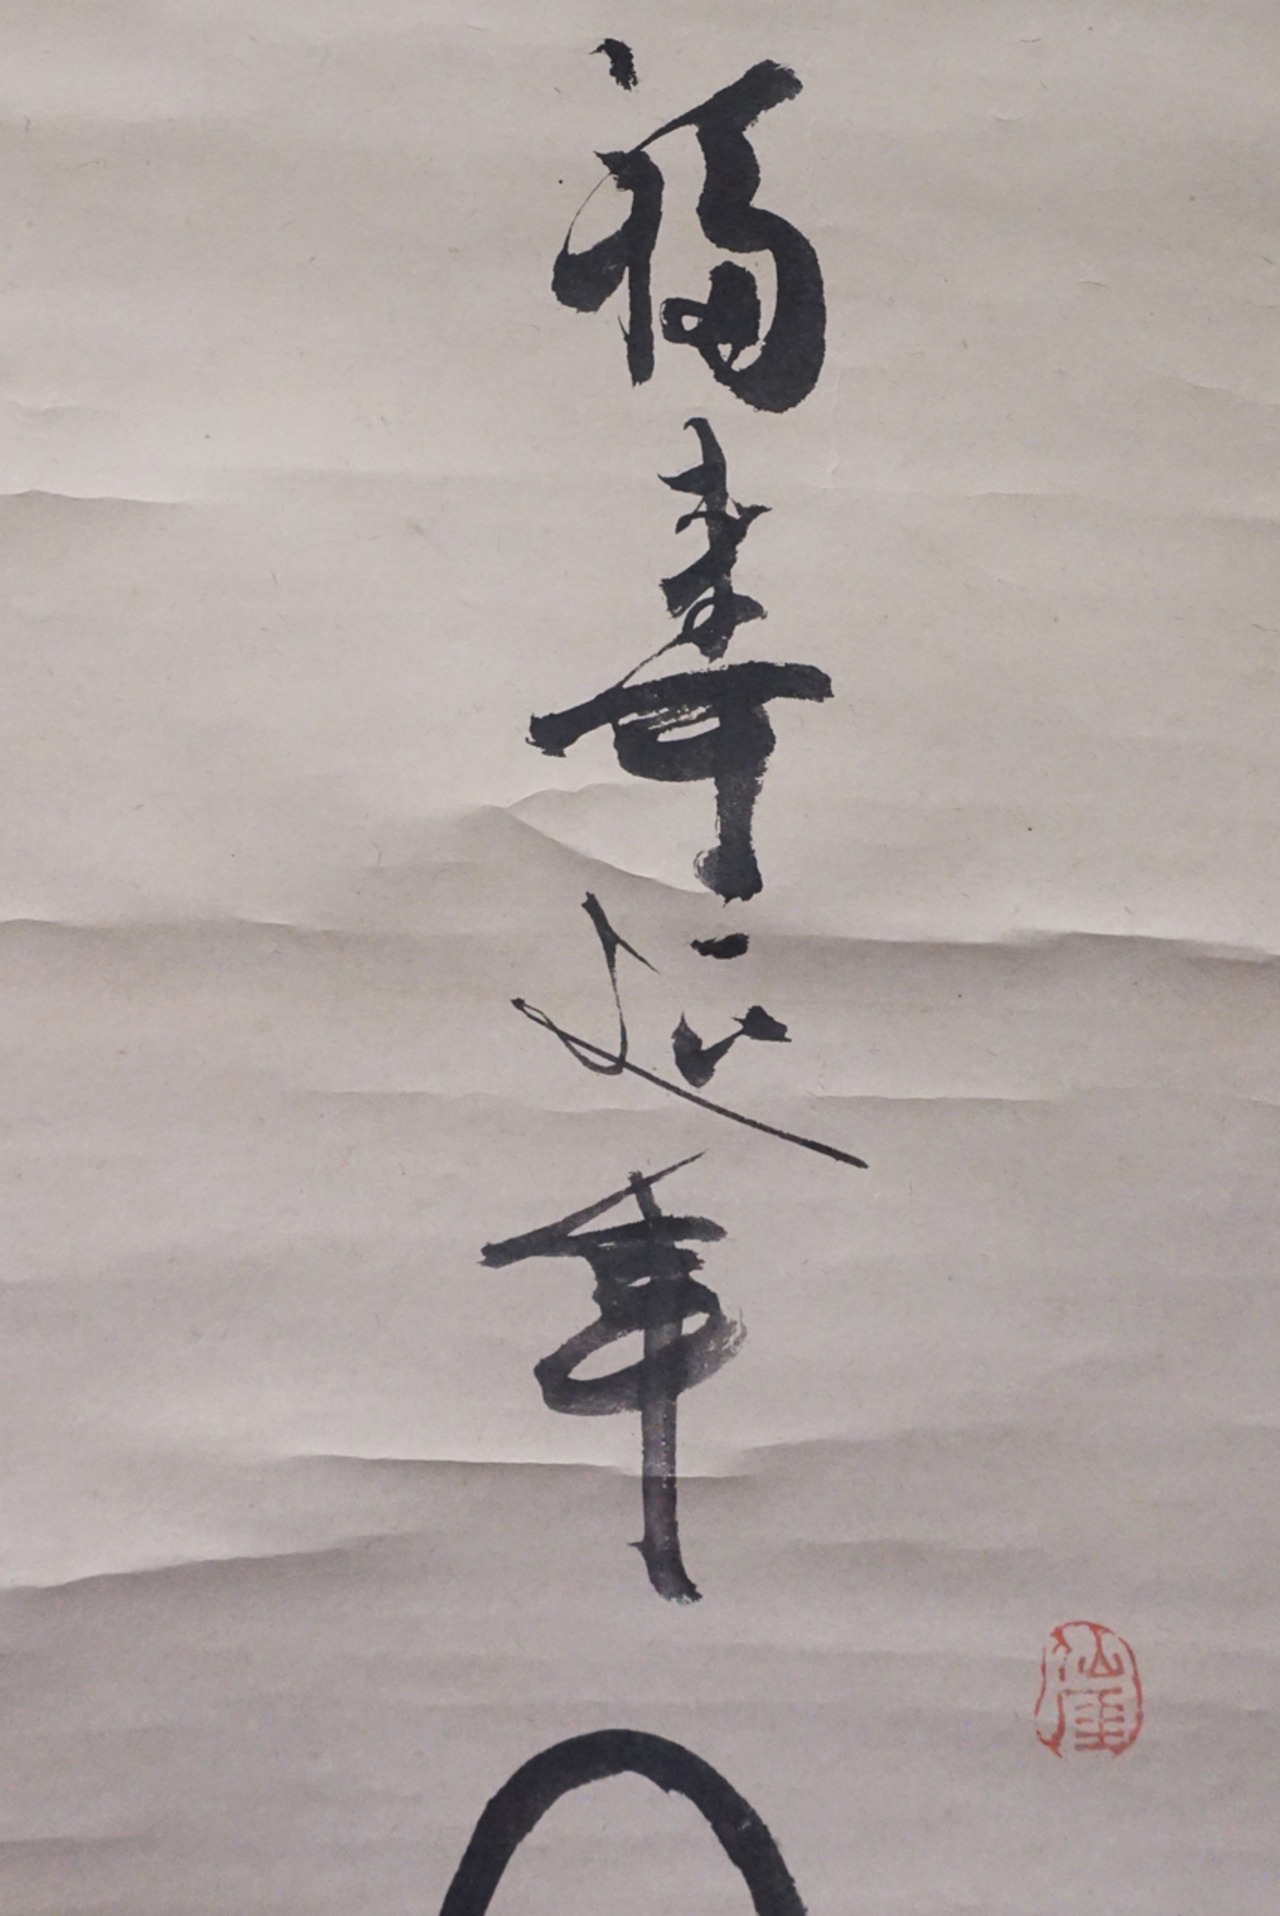 福壽延年
仙厓